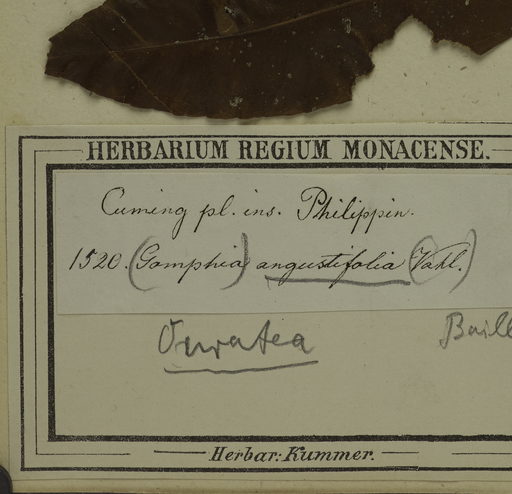 HERBARIUM REGIUM MONACENSE.
Cuming pl. ins. Philippin.
1520. (Gomphia) angustifolia (Vahl.)
Ouratea Baill
Herbar: Kummer.